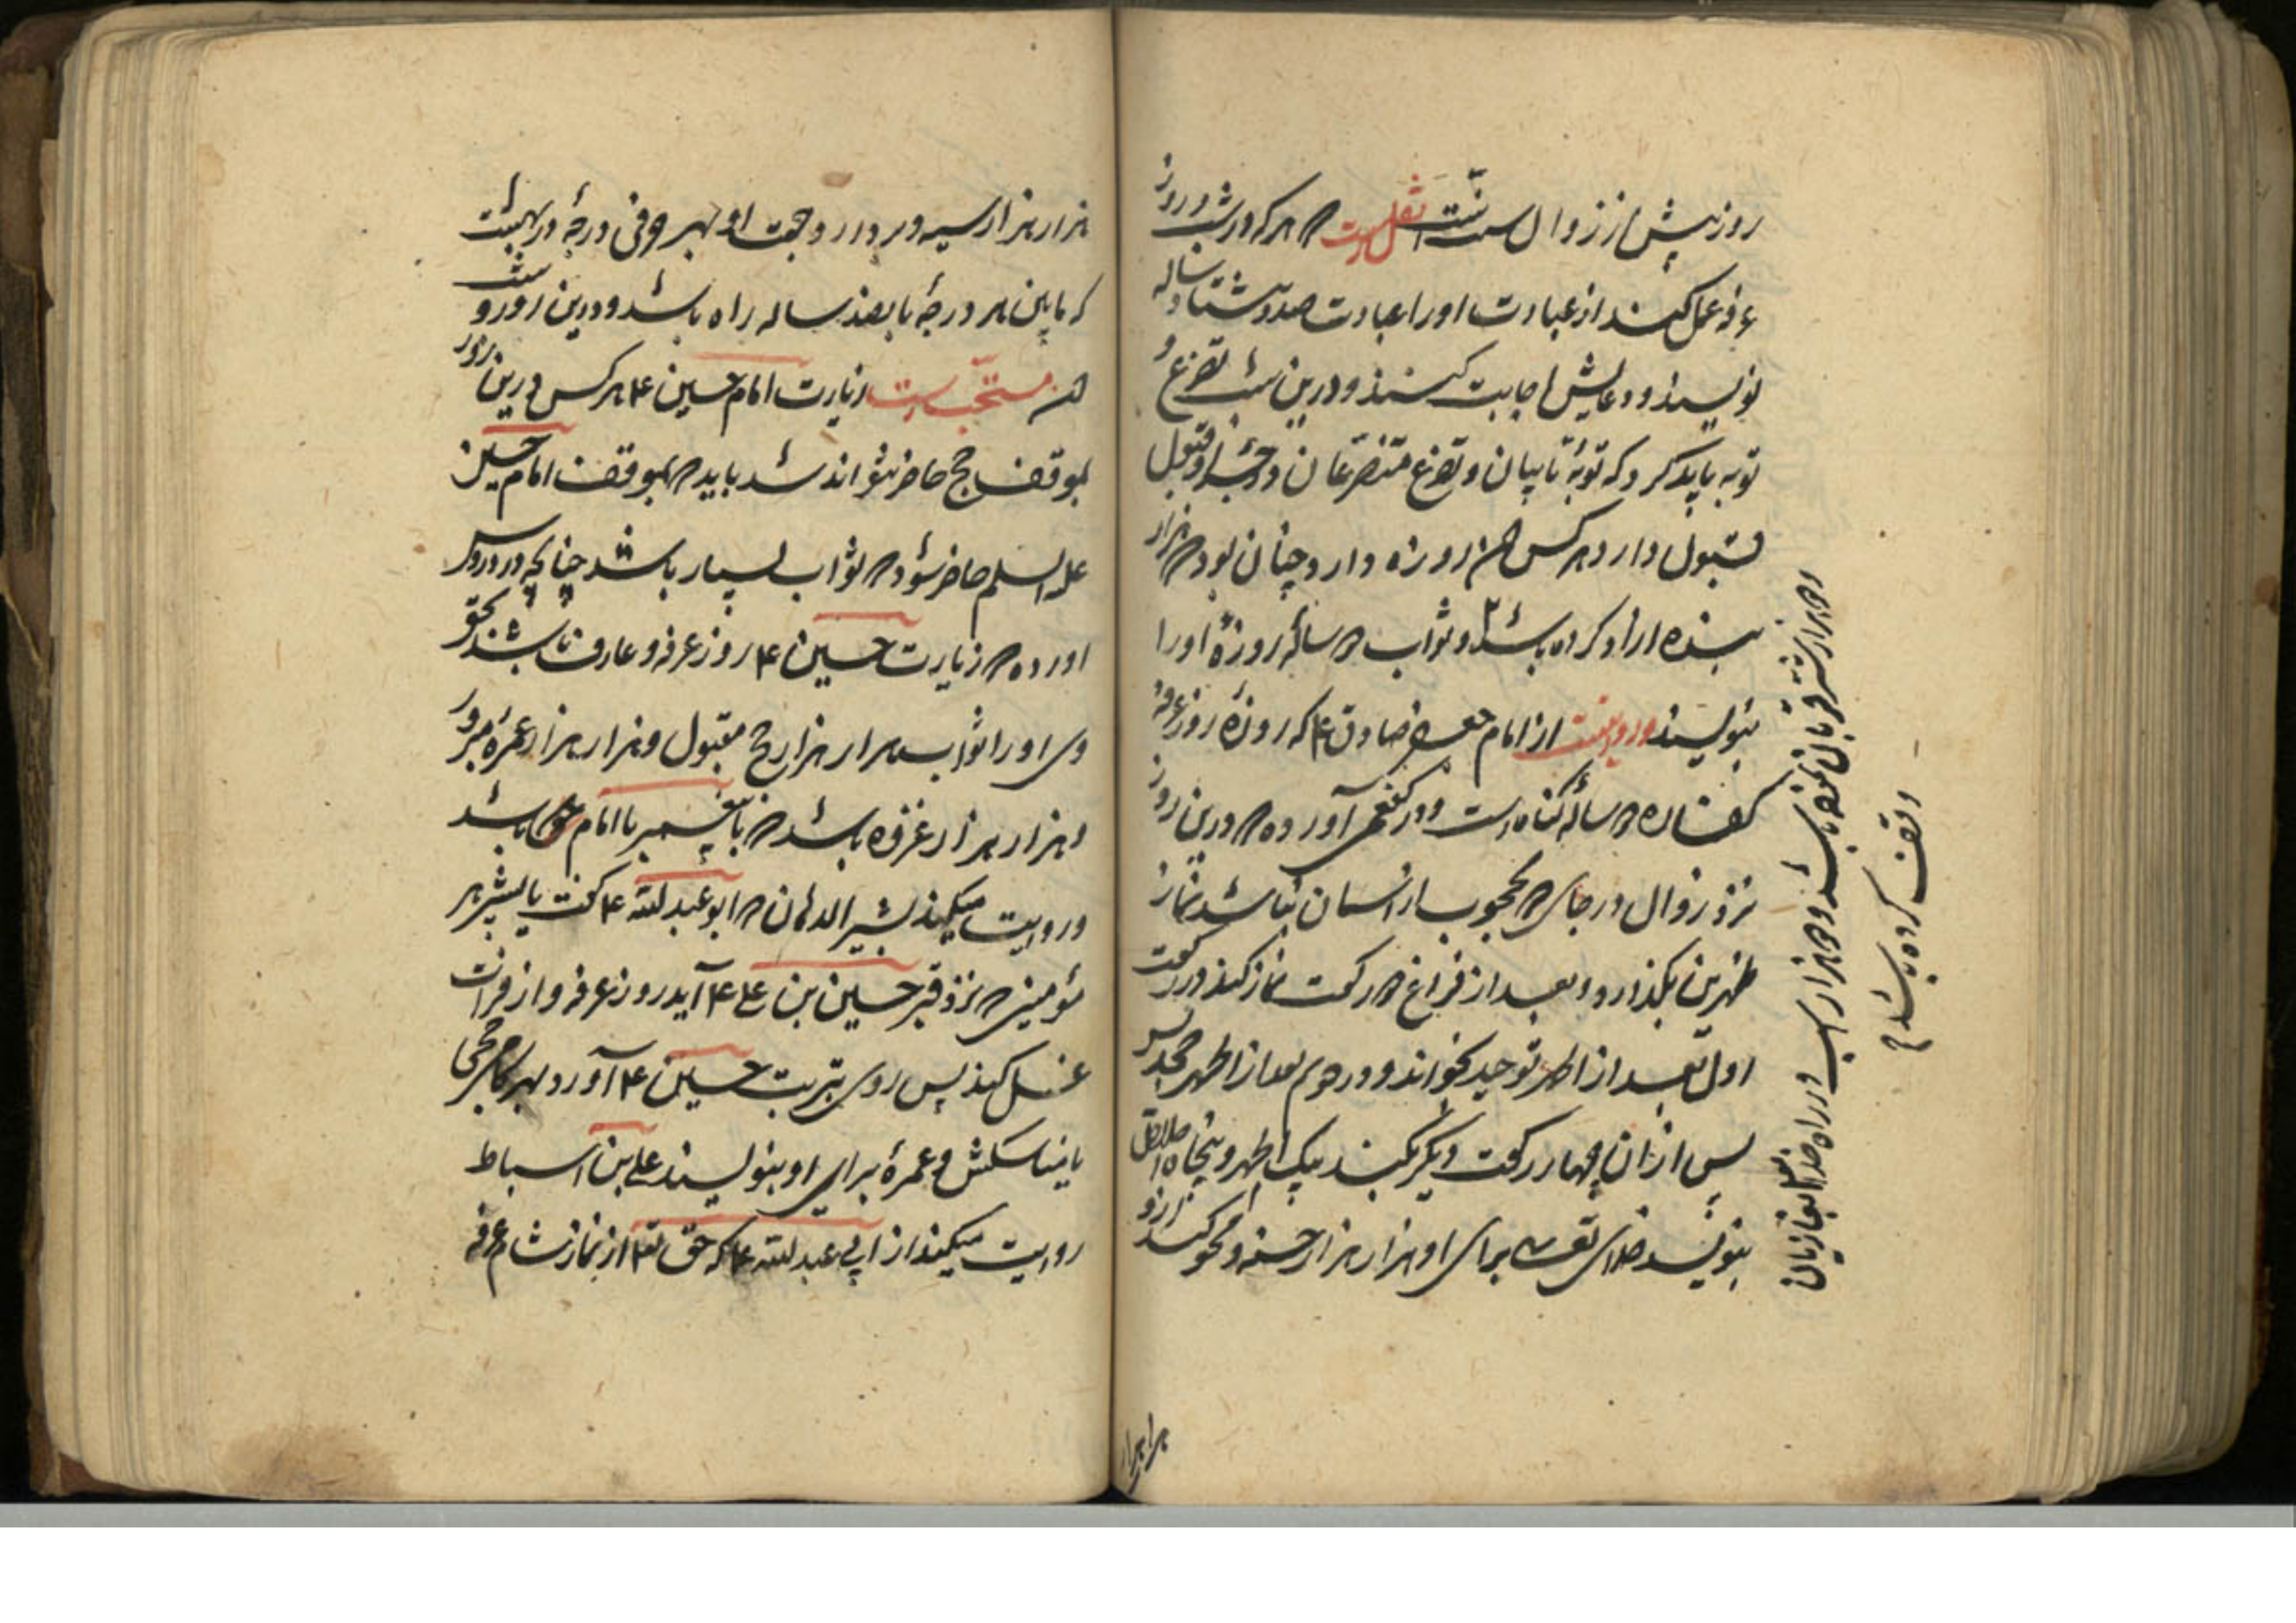 روز پیش از زوال سنت است نقلست که هرکه در شب و روز
عرفه عمل کند از عبادت او را عبادت صد و هشتاد ساله
نویسند و دعایش اجابت کنند و درین شب تضرع و
توبه باید کرد که توبهٔ تایبان و تضرع متضرعان قبول
قبول دارد هرکس که روزه دارد چنان بود که هزار
بنده ازاد کرده باشد و ثواب ساله روزهٔ او را
بنویسند و روایتست از امام جعفر صادق ۴ که روزهٔ روز عرفه
کفاره ساله گناهست و در کفعمی آورده که درین روز
نزد زوال در جای که محجوب از اسمان نباشد نماز
ظهرین بگذارد و بعد از فراغ دو رکعت نماز کند در رکعت
اول بعد از الحمد توحید بخواند و در دوم بعد از الحمد جحد
پس از ان چهار رکعت دیگر بکند بیک الحمد و پنجاه اخلاص
بنویسد خدای تعالی برای او هزار هزار حسنه و محو کند ازو
و هزار شتر قربانی نموده باشد و هزار اسب در راه خدا بغازیان
وقف کرده باشد
هزار هزار
هزار هزار سیه و بردارد و جهت او درجه در بهشت
که مابین هر درجه پانصد ساله راه باشد و درین روز و شب
مستحبست زیارت امام حسین ۴ هرکس درین روز
بموقف حج حاضر نتواند شد باید که بموقف امام حسین
علیه السلم حاضر شود که ثواب بسیار باشد چنانچه در دروس
اورده که زیارت حسین ۴ روز عرفه و عارف باشد بحق
وی او را ثواب هزار هزار حج مقبول و هزار هزار عمره مبرور
و هزار هزار غزوه باشد که با پیغمبر یا امام باشد
و روایت میکند بشیر الدهان که ابو عبد الله ۴ گفت یا بشیر هر
مؤمنی که نزد قبر حسین بن علی ۴ آید روز عرفه و از فرات
غسل کند پس روی بتربت حسین ۴ آورد بهر کامی حجی
با مناسکش و عمره برای او بنویسند علی بن اسباط
روایت میکند از ابی عبد الله ۴ که حق تعالی از نماز شام عرفه